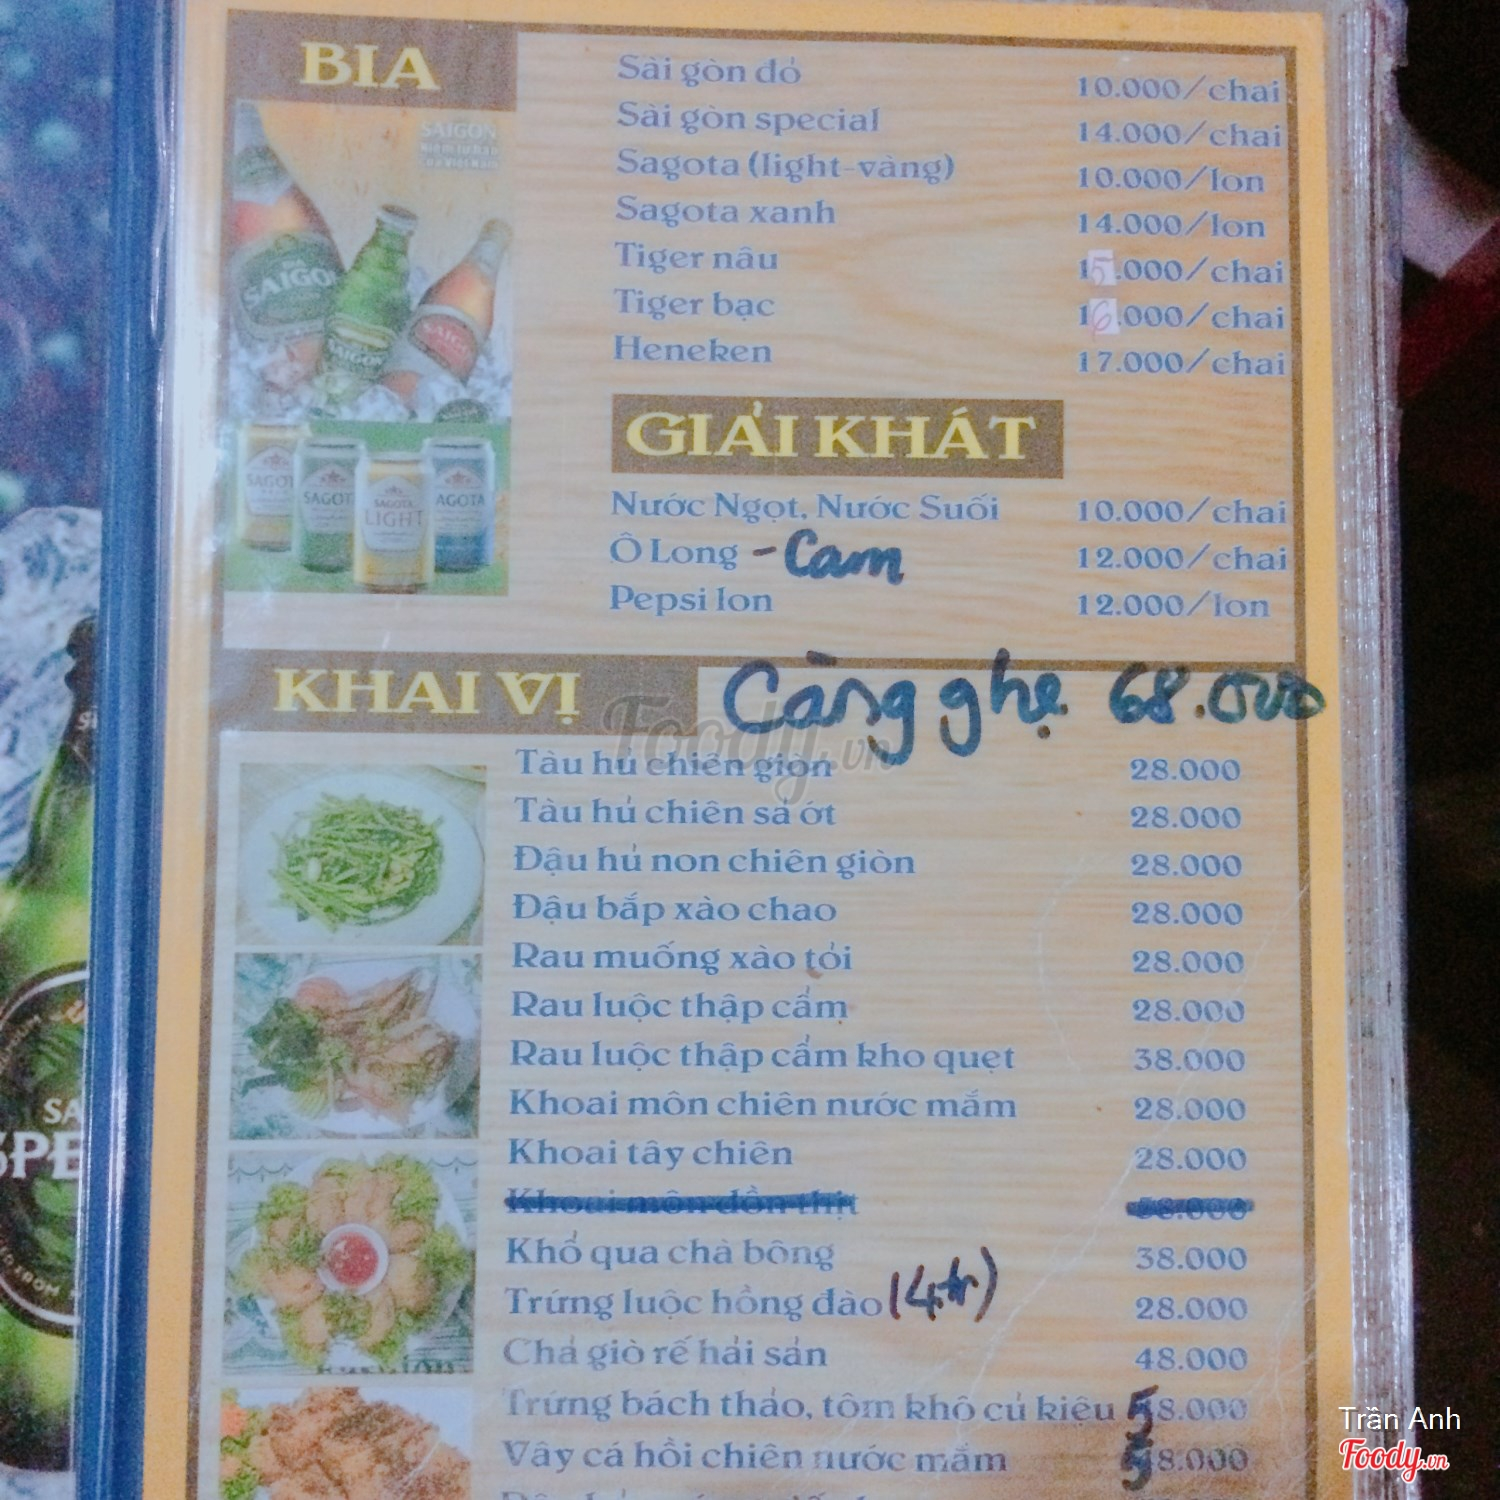 BIA
Sài gòn đỏ 10.000/chai
Sài gòn special 14.000/chai
Sagota (light-vàng) 10.000/lon
Sagota xanh 14.000/lon
Tiger nâu 15.000/chai
Tiger bạc 16.000/chai
Heneken 17.000/chai
SAIGON
SAIGON
SAIGON
SAGOTA
SAGOTA
LIGHT
AGOTA
GIẢI KHÁT
Nước Ngọt, Nước Suối 10.000/chai
Ô Long - Cam 12.000/chai
Pepsi lon 12.000/lon
KHAI VỊ Càng ghẹ 68.000
Foody.vn
Tàu hủ chiên giọn 28.000
Tàu hủ chiên sả ớt 28.000
Đậu hủ non chiên giòn 28.000
Đậu bắp xào chao 28.000
Rau muống xào tỏi 28.000
Rau luộc thập cẩm 28.000
Rau luộc thập cẩm kho quẹt 38.000
Khoai môn chiên nước mắm 28.000
Khoai tây chiên 28.000
Khoai môn dồn thịt
Khổ qua chà bông 38.000
Trứng luộc hồng đào (4tr) 28.000
Chả giò rế hải sản 48.000
Trứng bách thảo, tôm khô củ kiệu 58.000
Vây cá hồi chiên nước mắm 58.000
Trần Anh
Foody.vn